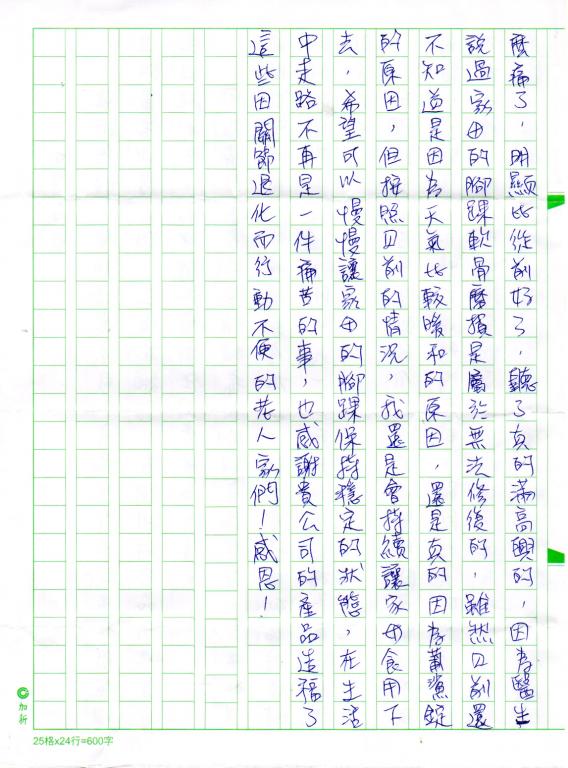 麼痛了，明顯比從前好了，聽了真的滿高興的，因為醫生
說過家母的腳踝軟骨磨損是屬於無法修復的，雖然目前還
不知道是因為天氣比較暖和的原因，還是真的因為葡鯊錠
的原因，但按照目前的情況，我還是會持續讓家母食用下
去，希望可以慢慢讓家母的腳踝保持穩定的狀態，在生活
中走路不再是一件痛苦的事，也感謝貴公司的產品造福了
這些因關節退化而行動不便的老人家們！感恩！
加新
25格x24行=600字